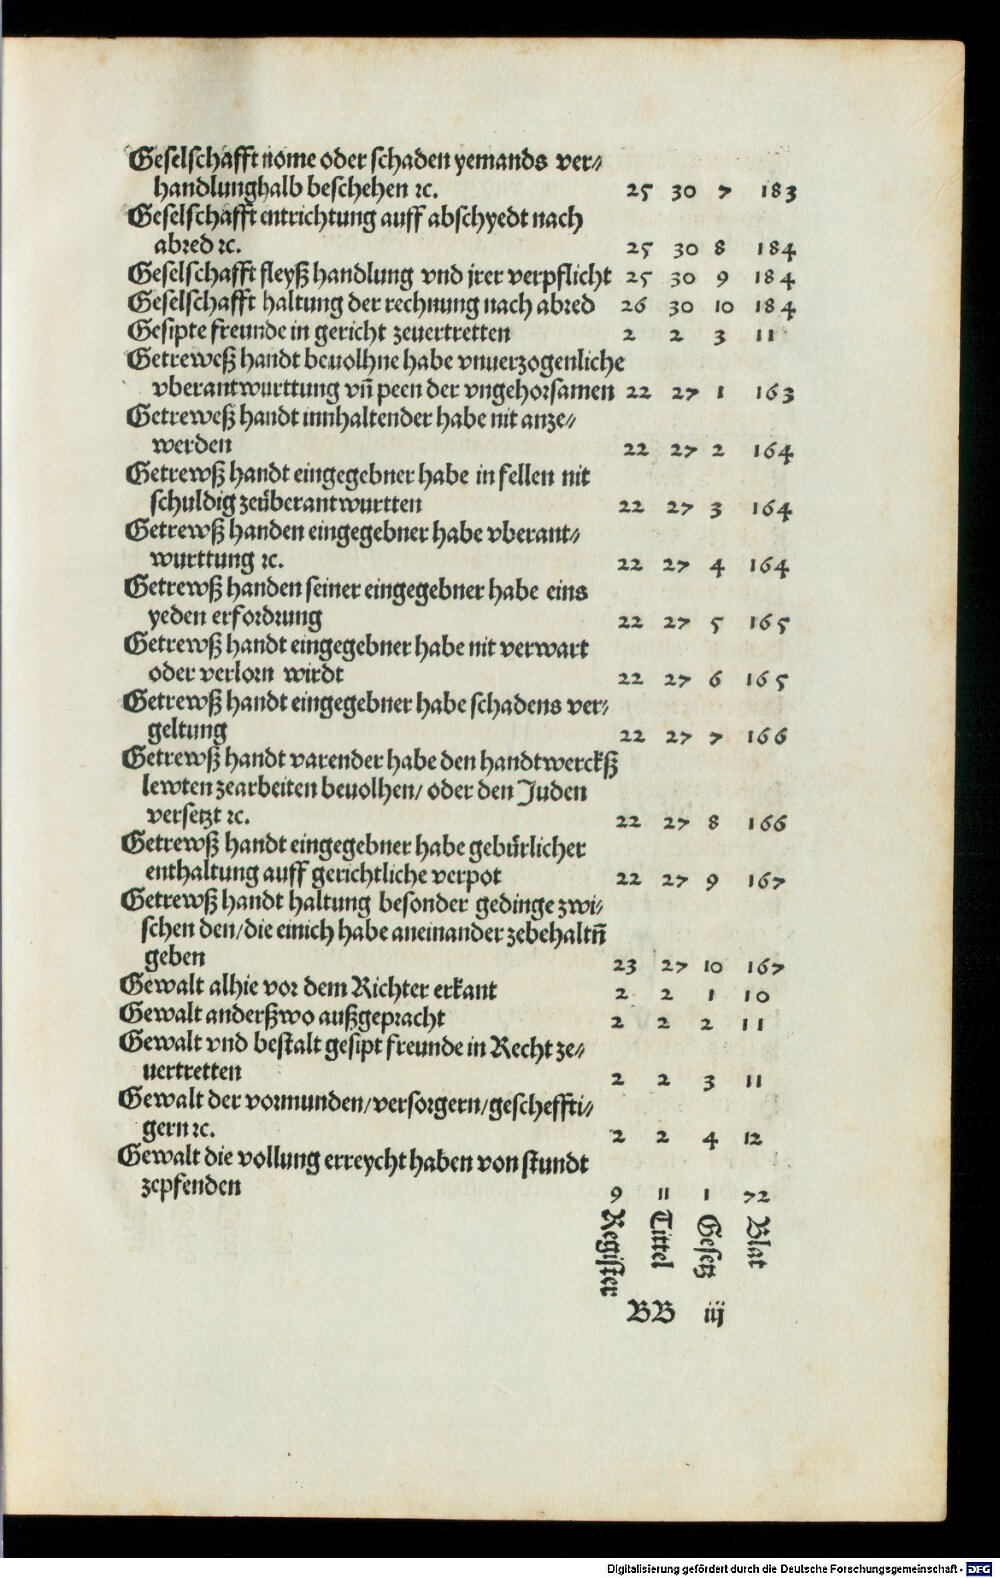 Geselschafft nome oder schaden yemands ver⸗
handlunghalb beschehen ꝛc. 25 30 7 183
Geselschafft entrichtung auff abschyedt nach
abred ꝛc. 25 30 8 184
Geselschafft fleyß handlung vnd jrer verpflicht 25 30 9 184
Geselschafft haltung der rechnung nach abred 26 30 10 184
Gesipte freunde in gericht zeuertretten 2 2 3 11
Getreweß handt beuolhne habe vnuerzogenliche
vberantwurttung vñ peen der vngehorsamen 22 27 1 163
Getreweß handt innhaltender habe nit anze⸗
werden 22 27 2 164
Getrewß handt eingegebner habe in fellen nit
schuldig zeüberantwurtten 22 27 3 164
Getrewß handen eingegebner habe vberant⸗
wurttung ꝛc. 22 27 4 164
Getrewß handen seiner eingegebner habe eins
yeden erfordrung 22 27 5 165
Getrewß handt eingegebner habe nit verwart
oder verlorn wirdt 22 27 6 165
Getrewß handt eingegebner habe schadens ver⸗
geltung 22 27 7 166
Getrewß handt varender habe den handtwerckß
lewten zearbeiten beuolhen/ oder den Juden
versetzt ꝛc. 22 27 8 166
Getrewß handt eingegebner habe gebürlicher
enthaltung auff gerichtliche verpot 22 27 9 167
Getrewß handt haltung besonder gedinge zwi⸗
schen den/die einich habe aneinander zebehaltñ
geben 23 27 10 167
Gewalt alhie vor dem Richter erkant 2 2 1 10
Gewalt anderßwo außgepracht 2 2 2 11
Gewalt vnd bestalt gesipt freunde in Recht ze⸗
uertretten 2 2 3 11
Gewalt der vormunden/versorgern/gescheffti⸗
gern ꝛc. 2 2 4 12
Gewalt die vollung erreycht haben von stundt
zepfenden 9 11 1 72
Register Tittel Gesetz Blat
BB iij
Digitalisierung gefördert durch die Deutsche Forschungsgemeinschaft - DFG